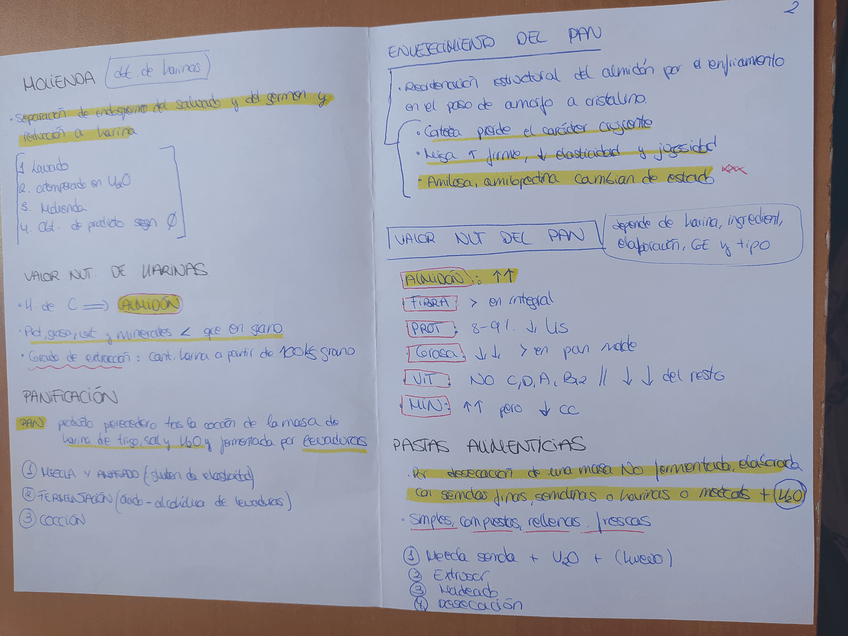 MOLIENDA (obt. de harinas)
· Separación de endospermo del salvado y del germen y
reducción a harina
1. Lavado
2. atemperado en H2O
3. Molienda
4. Obt. de producto segn Ø
VALOR NUT. DE HARINAS
· H. de C ⟹ ALMIDÓN
· Prot, grasa, vit y minerales < que en grano
· Grado de extracción: Cant. harina a partir de 100kg grano
PANIFICACIÓN
PAN producto perecedero tras la cocción de la masa de
harina de trigo, sal y H2O y fermentada por levaduras
① MEZCLA Y AMASADO (gluten da elasticidad)
② FERMENTACIÓN (ácido-alcohólica de levaduras)
③ COCCIÓN
2
ENVEJECIMIENTO DEL PAN
· Reordenación estructural del almidón por el enfriamiento
en el paso de amorfo a cristalino.
· Corteza pierde el carácter crujiente
· Miga ↑ firme, ↓ elasticidad y jugosidad
· Amilosa, amilopectina cambian de estado
VALOR NUT DEL PAN
depende de harina, ingredient,
elaboración, GE y tipo
ALMIDÓN: ↑↑
FIBRA > en integral
PROT: 8-9%. ↓ Lis
Grasa: ↓↓ > en pan molde
VIT: NO C, D, A, B12 // ↓ ↓ del resto
MIN: ↑↑ pero ↓ CC
PASTAS ALIMENTICIAS
· Por desecación de una masa NO fermentada, elaborada
con semolas finas, semolinas o harinas o mezclas + H2O
· Simples, compuestas, rellenas, frescas
① Mezcla semola + H2O + (Huevo)
② Extrusor
③ Moldeado
④ DESECACIÓN